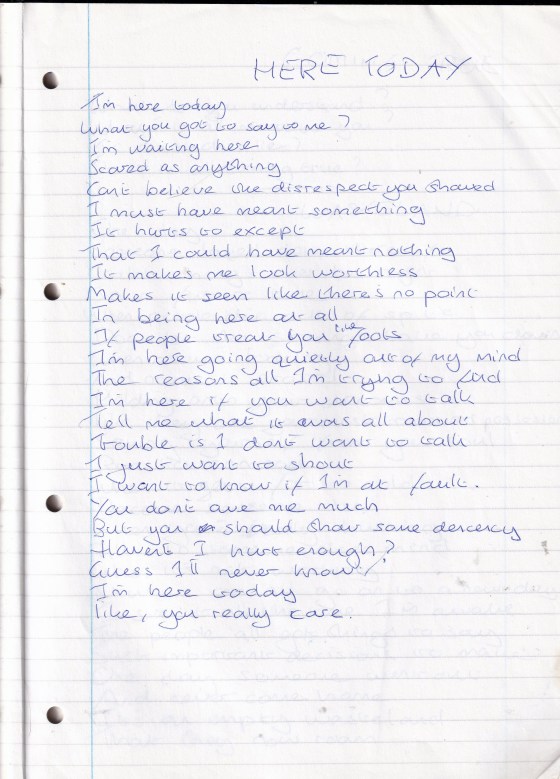 HERE TODAY
I'm here today
What you got to say to me?
I'm waiting here
Scared as anything
Can't believe the disrespect you showed
I must have meant something
It hurts to except
That I could have meant nothing
It makes me look worthless
Makes it seen like there's no point
In being here at all
If people treat you like fools
I'm here going quietly out of my mind
The reasons all I'm trying to find
I'm here if you want to talk
Tell me what it was all about
Trouble is I don't want to talk
I just want to shout
I want to know if I'm at fault.
You don't owe me much
But you should show some dercency
Haven't I hurt enough?
Guess I'll never know
I'm here today
like, you really care.